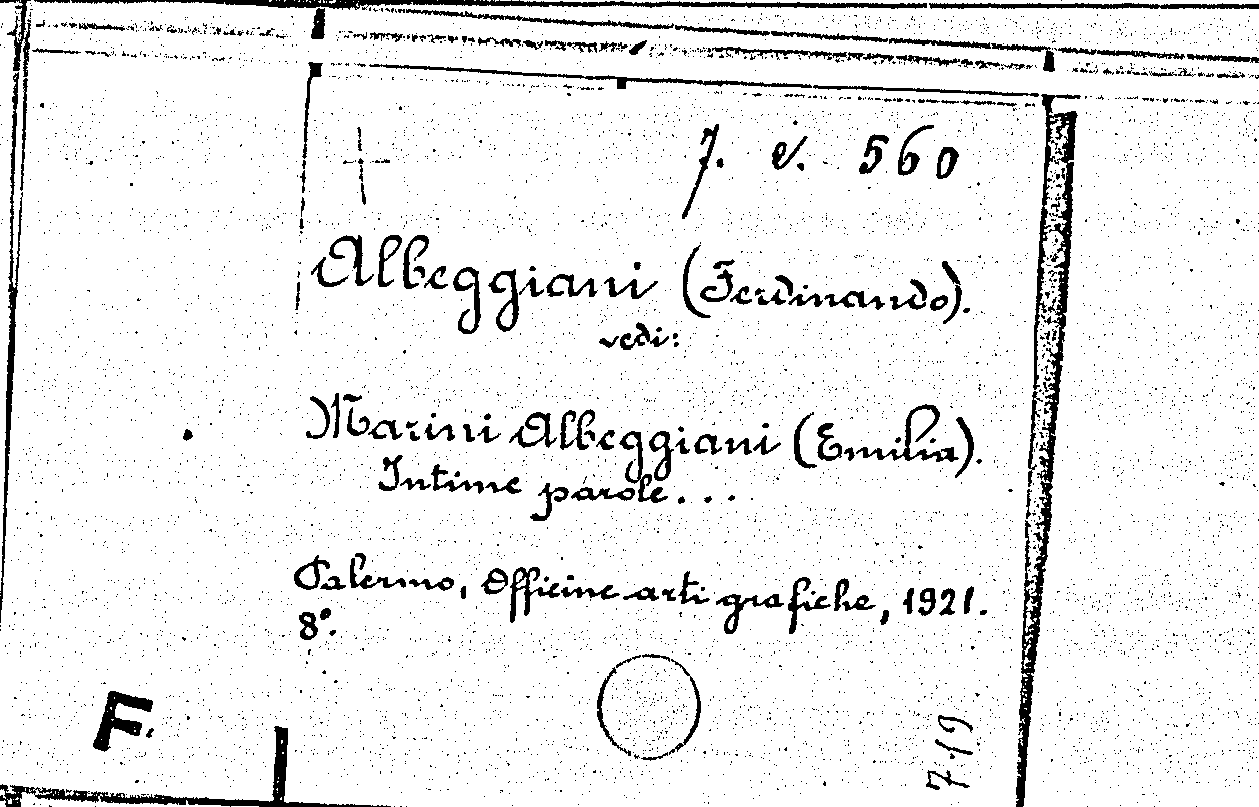 7. v. 560
Albeggiani (Ferdinando).
vedi:
Marini Albeggiani (Emilia).
Intime parole...
Palermo, Officine arti grafiche, 1921.
8°.
F.
719